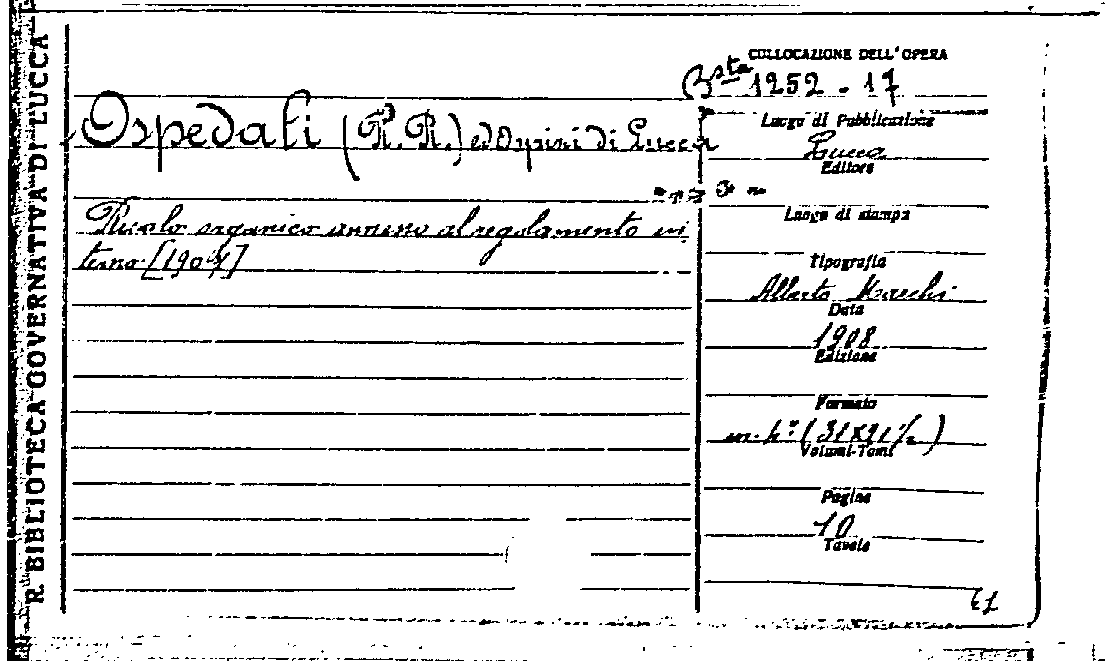 R. BIBLIOTECA GOVERNATIVA DI LUCCA
COLLOCAZIONE DELL'OPERA
Bsta 1252 - 17
Ospedali (R. R.) ed Ospizi di Lucca
Luogo di Pubblicazione
Lucca
Editore
Ruolo organico annesso al regolamento in
terno [1904]
Luogo di stampa
Tipografia
Alberto Marchi
Data
1908
Edizione
Formato
in-4° (31x21½)
Volumi-Tomi
Pagine
10
Tavole